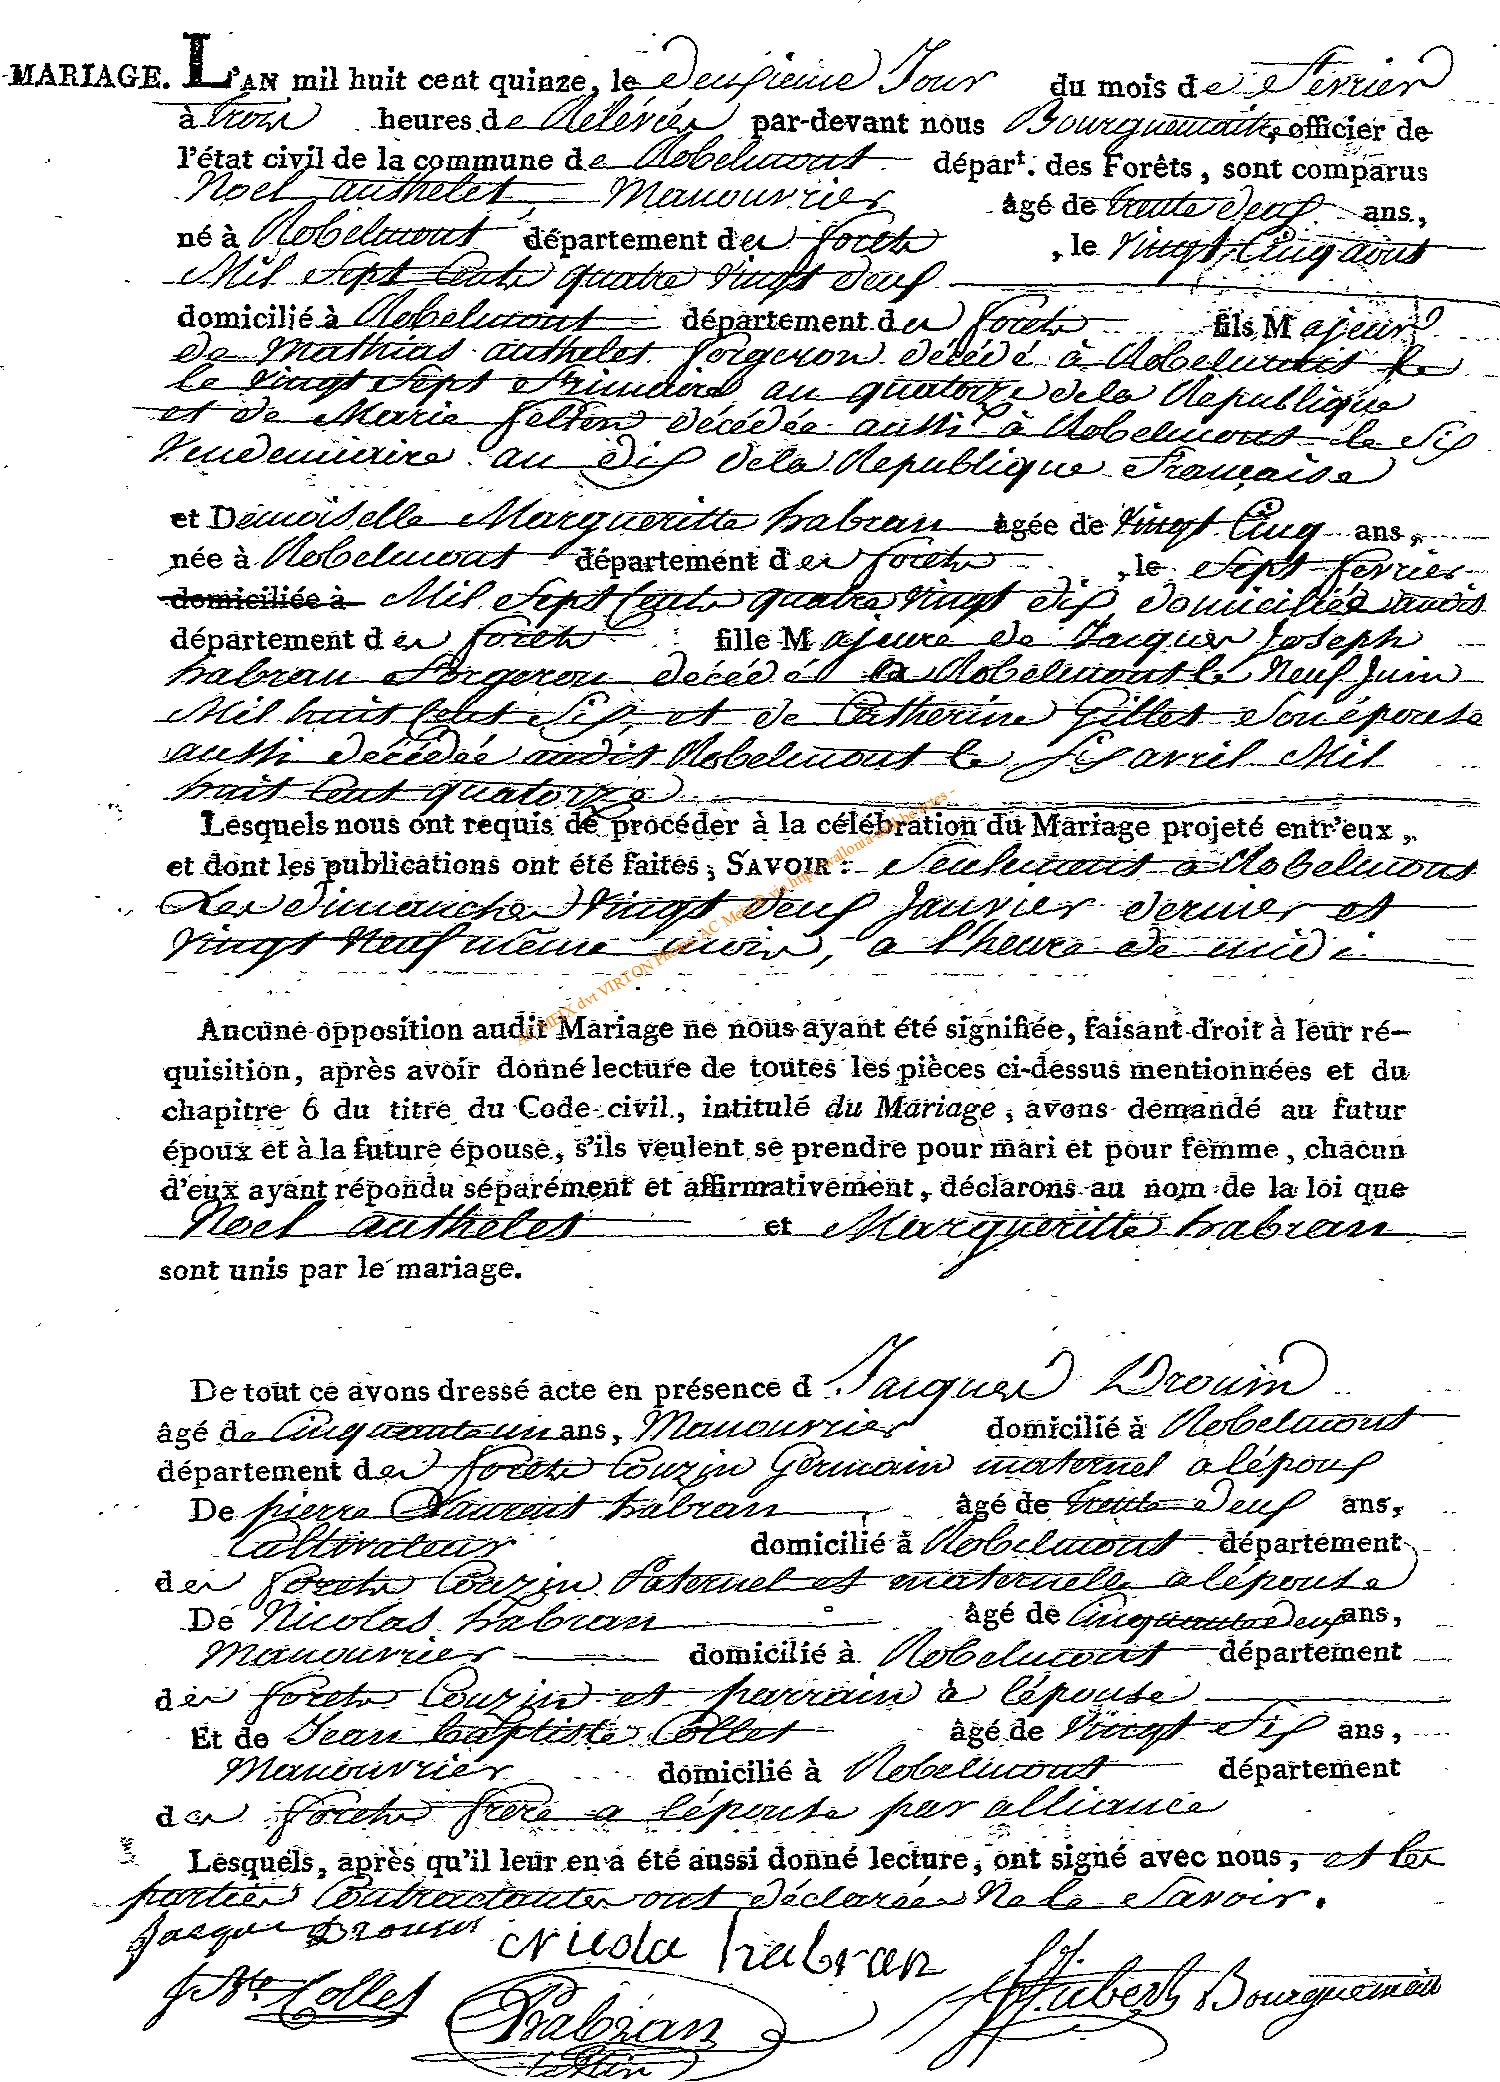 MARIAGE. L'AN mil huit cent quinze, le deuxieme Jour du mois de Fevrier
à trois heures de Relévée par-devant nous Bourguemaitre, officier de
l'état civil de la commune de Robelmont départ. des Forêts, sont comparus
Noel authelet, Manouvrier âgé de trente deux ans,
né à Robelmont département des forets, le vingt Cinq aout
Mil Sept Cents quatre vingt deux
domicilié à Robelmont département des forets fils Majeur
de Mathias authelet forgeron décédé à Robelmont le
le vingt Sept frimaire an quatorze dela République
et de Marie felten décédée aussi à Robelmont le Six
Vendemiaire an dix dela Republique Francaise
et Demoiselle Margueritte habran âgée de vingt Cinq ans,
née à Robelmont département des forets, le Sept fevrier
domiciliée à Mil Sept Cents quatre vingt dix, domiciliée audit
département des forets fille Majeure de Jacques Joseph
habran forgeron décédé à Robelmont le Neuf Juin
Mil huit Cent Six, et de Catherine Gillet son épouse
aussi décédée audit Robelmont le six avril Mil
huit Cent quatorze
Lesquels nous ont requis de procéder à la célébration du Mariage projeté entr'eux,
et dont les publications ont été faites; SAVOIR: Seulement a Robelmont
Les dimanches vingt deux Janvier dernier et
vingt Neuf même mois, a l'heure de midi
Aucune opposition audit Mariage ne nous ayant été signifiée, faisant droit à leur ré-
quisition, après avoir donné lecture de toutes les pièces ci-dessus mentionnées et du
chapitre 6 du titre du Code civil, intitulé du Mariage, avons demandé au futur
époux et à la future épouse, s'ils veulent se prendre pour mari et pour femme, chacun
d'eux ayant répondu séparément et affirmativement, déclarons au nom de la loi que
Noel authelet et Margueritte habran
sont unis par le mariage.
De tout ce avons dressé acte en présence d Jacques Drouin
âgé de Cinquante un ans, Manouvrier domicilié à Robelmont
département des forets Couzin Germain maternel a lépoux
De pierre Laurent habran, âgé de trente deux ans,
Cultivateur domicilié à Robelmont département
des forets Couzin Paternel et maternelle a lépouse
De Nicolas habran âgé de Cinquante deux ans,
Manouvrier domicilié à Robelmont département
des forets Couzin et parrain à lépouse
Et de Jean baptiste Collet âgé de vingt Six ans,
Manouvrier domicilié à Robelmont département
des forets frere a lépouse par alliance
Lesquels, après qu'il leur en a été aussi donné lecture, ont signé avec nous, et les
parties Contractantes ont déclarées Ne le Savoir.
Jacque Drouin Nicola habran
J Bte Collet Habran Hubert Bourguemait